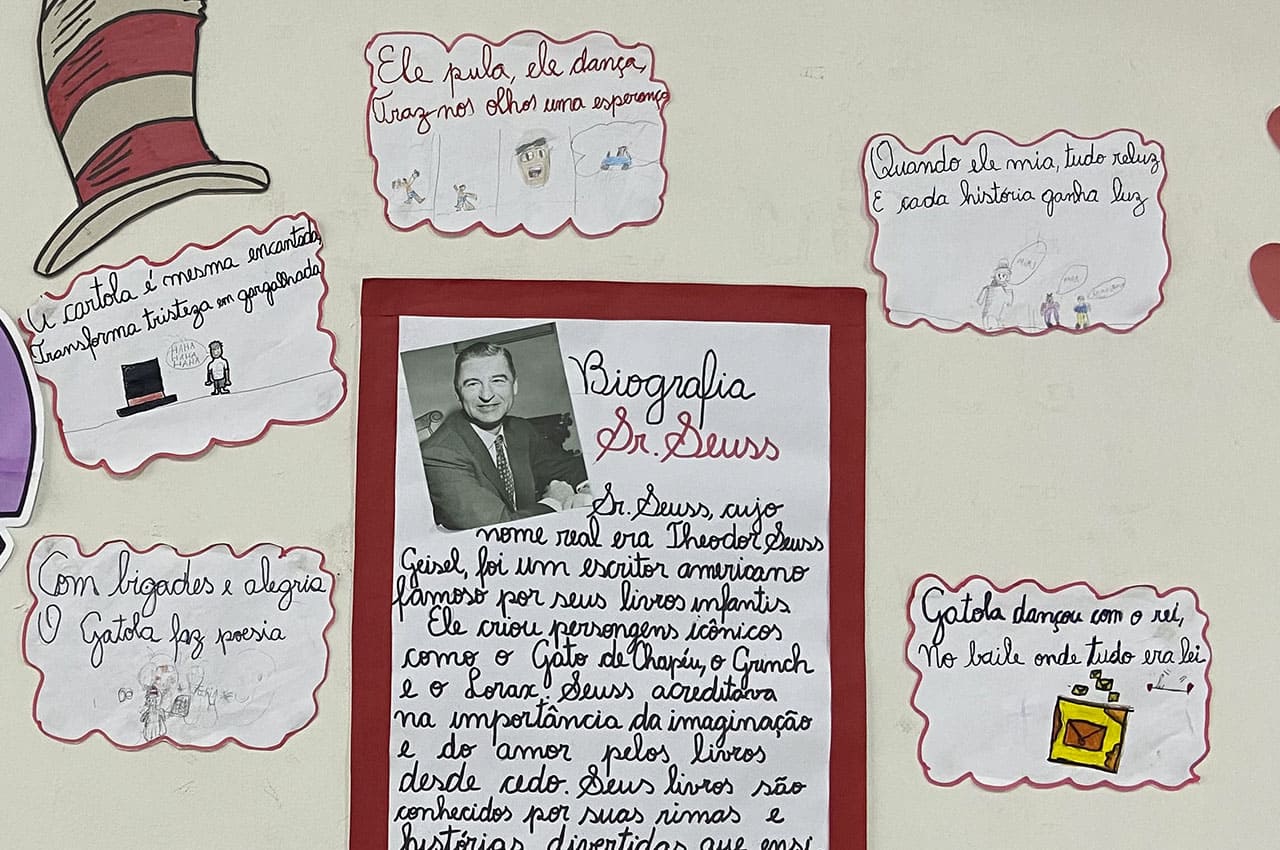 Ele pula, ele dança,
Traz nos olhos uma esperança
Quando ele mia, tudo reluz
E cada história ganha luz
A cartola é mesma encantada,
Transforma tristeza em gargalhada
HAHA
HAHA
HAHA
Biografia
Sr. Seuss
Sr. Seuss, cujo
nome real era Theodor Seuss
Geisel, foi um escritor americano
famoso por seus livros infantis
Ele criou persongens icônicos
como o Gato de Chapéu, o Grinch
e o Lorax. Seuss acreditava
na importância da imaginação
e do amor pelos livros
desde cedo. Seus livros são
conhecidos por suas rimas e
histórias divertidas que ensi
Com bigades e alegria
O Gatola faz poesia
Gatola dançou com o rei,
No baile onde tudo era lei